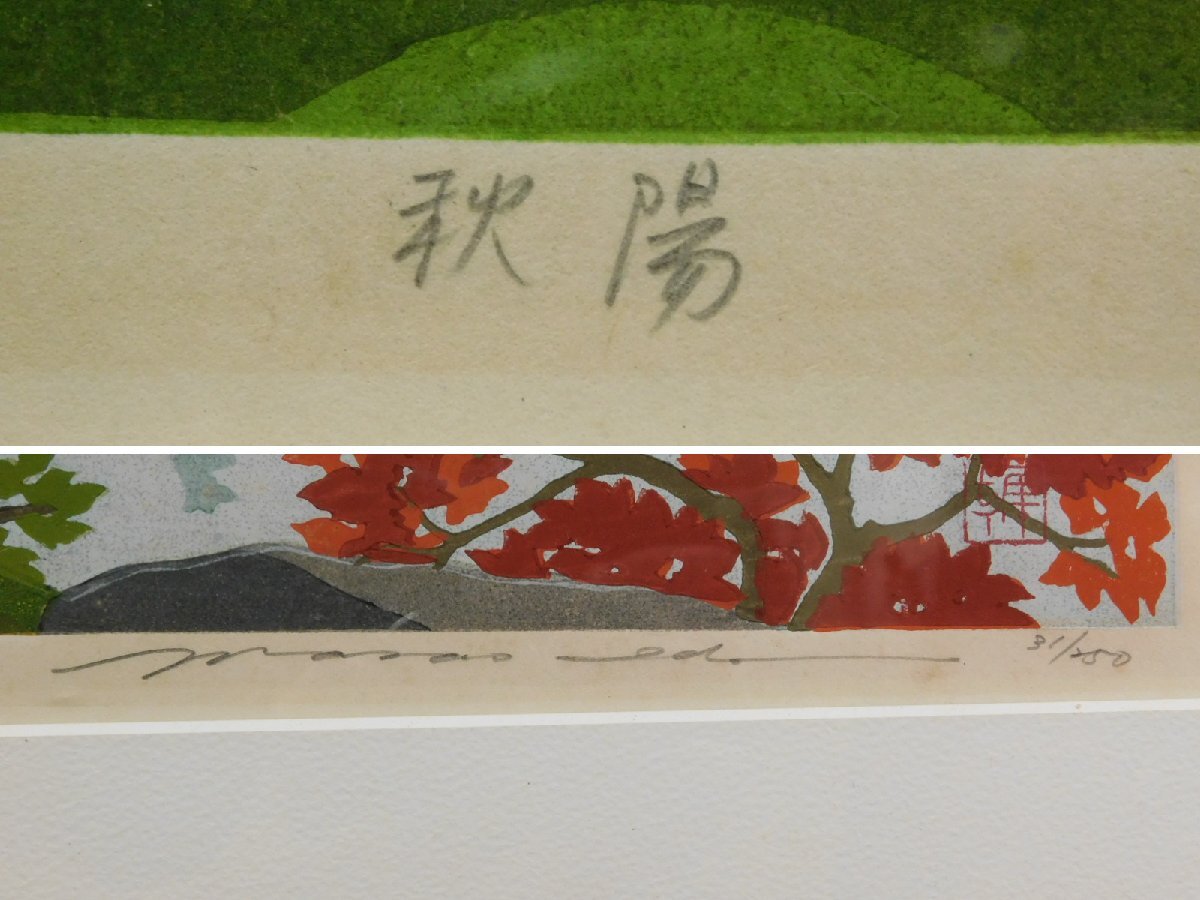 秋陽
Masao Ido
31/250